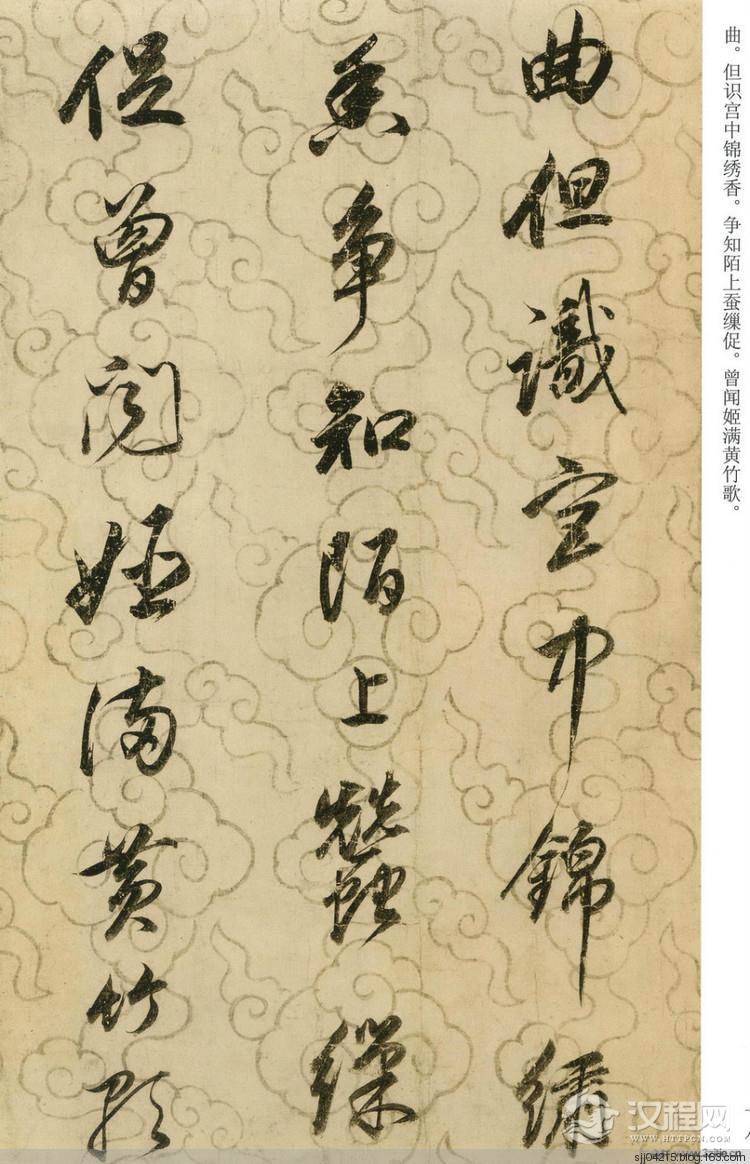 曲。但识宫中锦绣香。争知陌上蚕缫促。曾闻姬满黄竹歌。
曲但識宫中錦繡
香争知陌上蠶繅
促曾聞姬滿黄竹歌
汉程网
HTTPCN.COM
sjj04215.blog.163.com